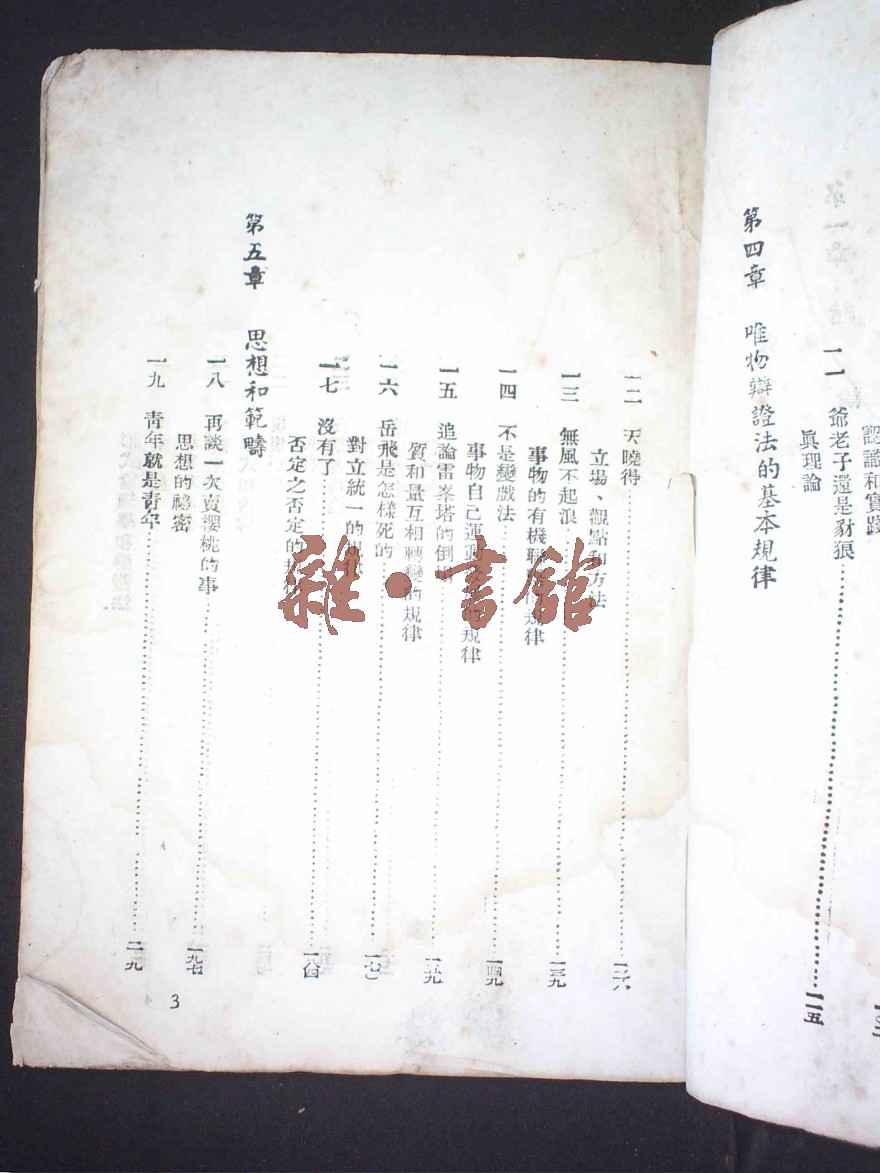 認識和實踐
一一 爺老子還是豺狼……一一五
眞理論
第四章 唯物辯證法的基本規律
一二 天曉得……一二六
立場、觀點和方法
一三 無風不起浪……一三九
事物的有機聯 規律
一四 不是變戲法……一四九
事物自己運動 規律
一五 追論雷峯塔的倒塌……一五九
質和量互相轉變的規律
一六 岳飛是怎樣死的……一七〇
對立統一的規律
一七 沒有了……一八四
否定之否定的規律
第五章 思想和範疇
一八 再談一次賣櫻桃的事……一九七
思想的祕密
一九 靑年就是靑年……二一九
3
雜·書館